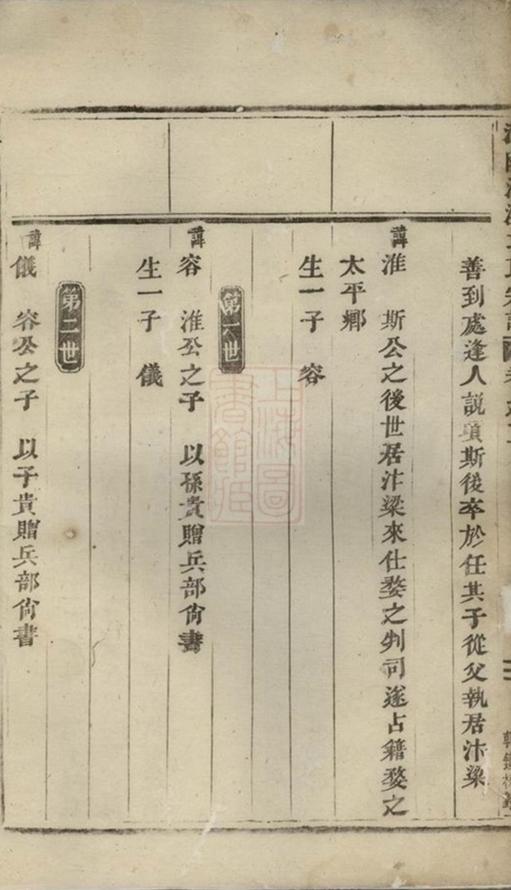 善到處逢人説項斯後卒於任其子從父執居汴梁
諱淮　斯公之後世居汴梁來仕婺之判司遂占籍婺之
太平鄉
生一子　容
第一世
諱容　淮公之子　以孫貴贈兵部尙書
生一子　儀
第二世
諱儀　容公之子　以子貴贈兵部尙書
上海圖書館藏